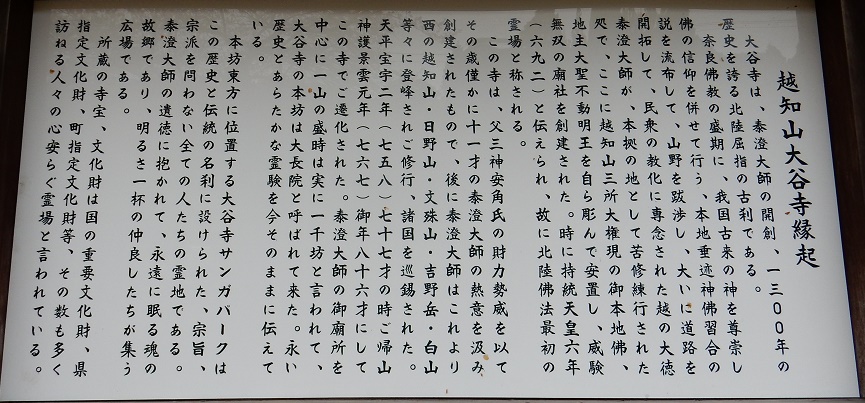 越知山大谷寺縁起
大谷寺は、泰澄大師の開創、一三〇〇年の
歴史を誇る北陸屈指の古刹である。
奈良佛教の盛期に、我国古来の神を尊崇し
佛の信仰を併せて行う、本地垂迹神佛習合の
説を流布して、山野を跋渉し、大いに道路を
開拓して、民衆の教化に専念された越の大徳
泰澄大師が、本拠の地として苦修練行された
処で、ここに越知山三所大権現の御本地佛、
地主大聖不動明王を自ら彫んで安置し、威験
無双の廟社を創建された。時に持統天皇六年
(六九二)と伝えられ、故に北陸佛法最初の
霊場と称される。
この寺は、父三神安角氏の財力勢威を以て
その歳僅かに十一才の泰澄大師の熱意を汲み
創建されたもので、後に泰澄大師はこれより
西の越知山・日野山・文殊山・吉野岳・白山
等々に登峰されご修行、諸国を巡錫された。
天平宝字二年(七五八)七十七才の時ご帰山
神護景雲元年(七六七)御年八十六才にして
この寺でご遷化された。泰澄大師の御廟所を
中心に一山の盛時は実に一千坊と言われて、
大谷寺の本坊は大長院と呼ばれて来た。永い
歴史とあらたかな霊験を今そのままに伝えて
いる。
本坊東方に位置する大谷寺サンガパークは
この歴史と伝統の名刹に設けられた、宗旨、
宗派を問わない全ての人たちの霊地である。
泰澄大師の遺徳に抱かれて、永遠に眠る魂の
故郷であり、明るさ一杯の仲良したちが集う
広場である。
所蔵の寺宝、文化財は国の重要文化財、県
指定文化財、町指定文化財等、その数も多く
訪ねる人々の心安らぐ霊場と言われている。